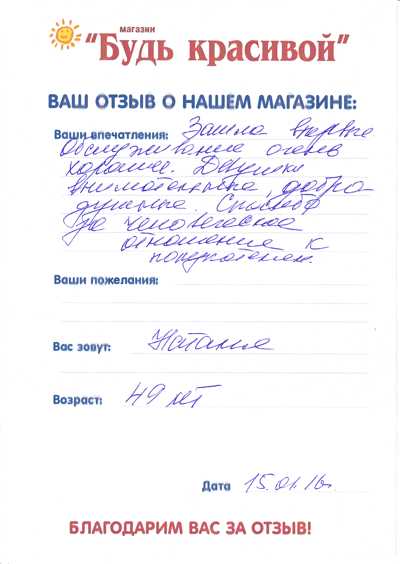 магазин
"Будь красивой"
ВАШ ОТЗЫВ О НАШЕМ МАГАЗИНЕ:
Ваши впечатления: Зашла впервые
Обслуживание очень
хорошее. Девушки
внимательные, добро-
душные. Спасибо
за человеческое
отношение к
покупателям.
Ваши пожелания:
Вас зовут: Наталия
Возраст: 49 лет
Дата 15.01.16г.
БЛАГОДАРИМ ВАС ЗА ОТЗЫВ!